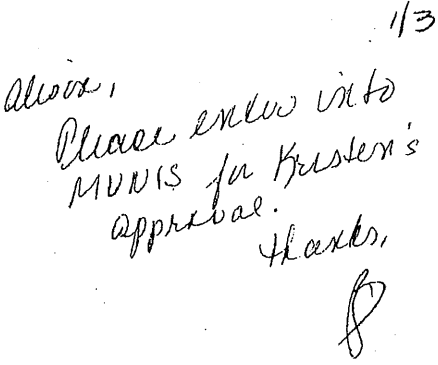 1/3
Please enter into
MUNIS for Kristen's
approval.
thanks,